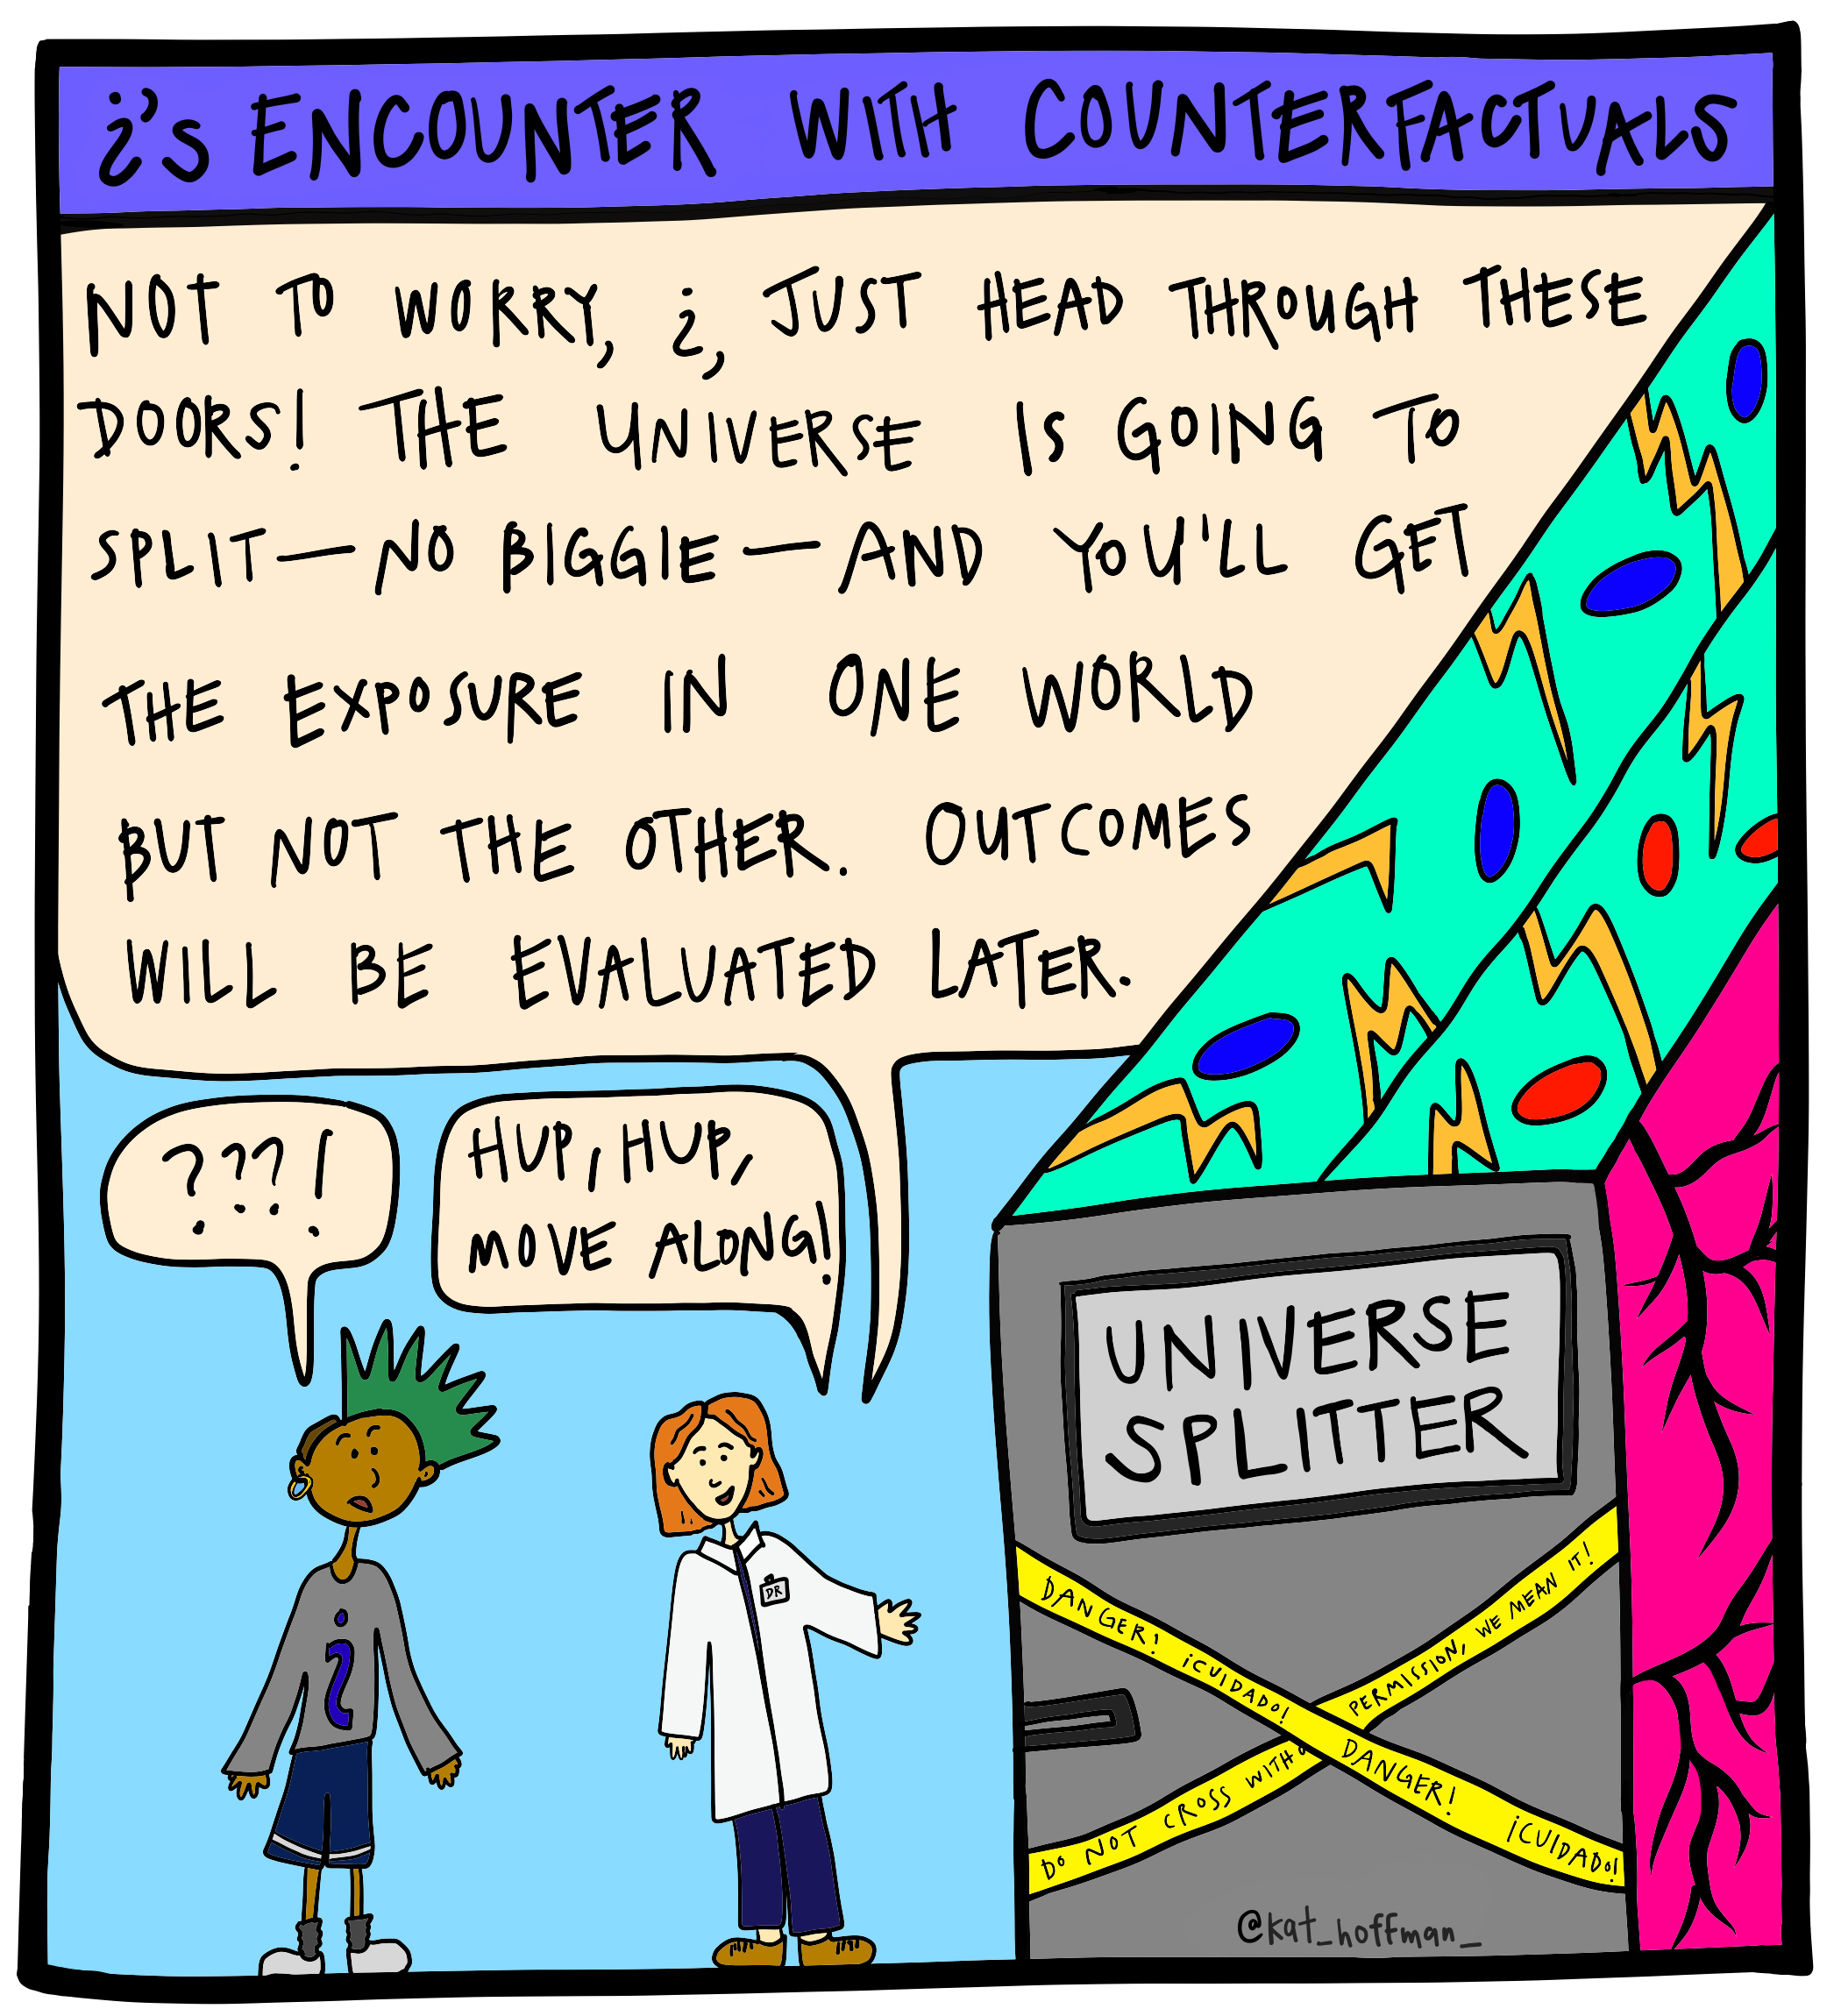 ¿'s ENCOUNTER WITH COUNTERFACTUALS
NOT TO WORRY, ¿, JUST HEAD THROUGH THESE
DOORS! THE UNIVERSE IS GOING TO
SPLIT—NO BIGGIE—AND YOU'LL GET
THE EXPOSURE IN ONE WORLD
BUT NOT THE OTHER. OUTCOMES
WILL BE EVALUATED LATER.
???!
HUP, HUP,
MOVE ALONG!
¿
DR
UNIVERSE
SPLITTER
DANGER! ¡CUIDADO! DANGER! ¡CUIDADO!
DO NOT CROSS WITHO PERMISSION, WE MEAN IT!
@kat_hoffman_